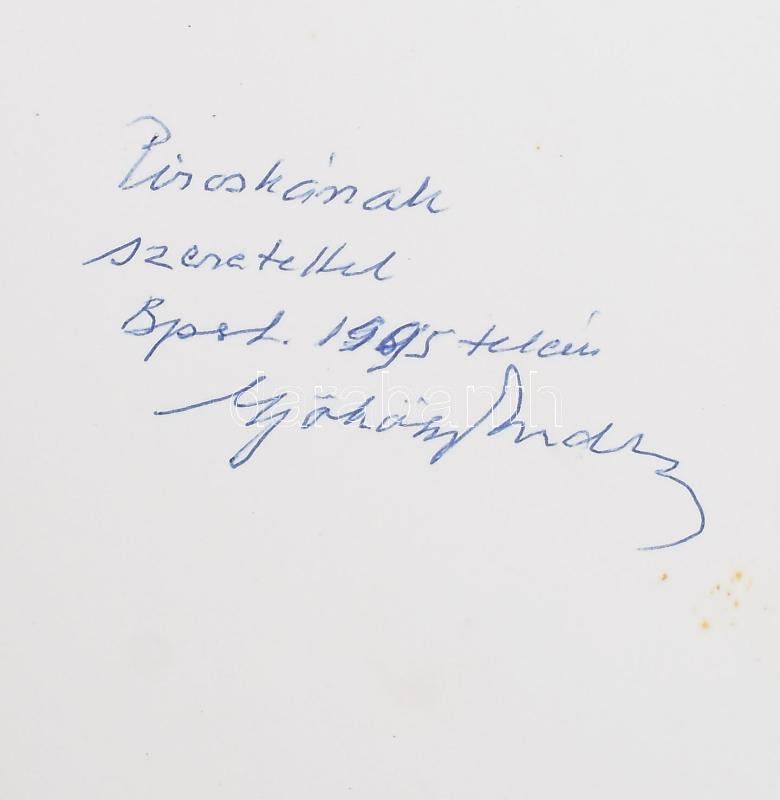 Piroskának
szeretettel
Bpest. 1995 telén
Gyökössy Endre
darabanth